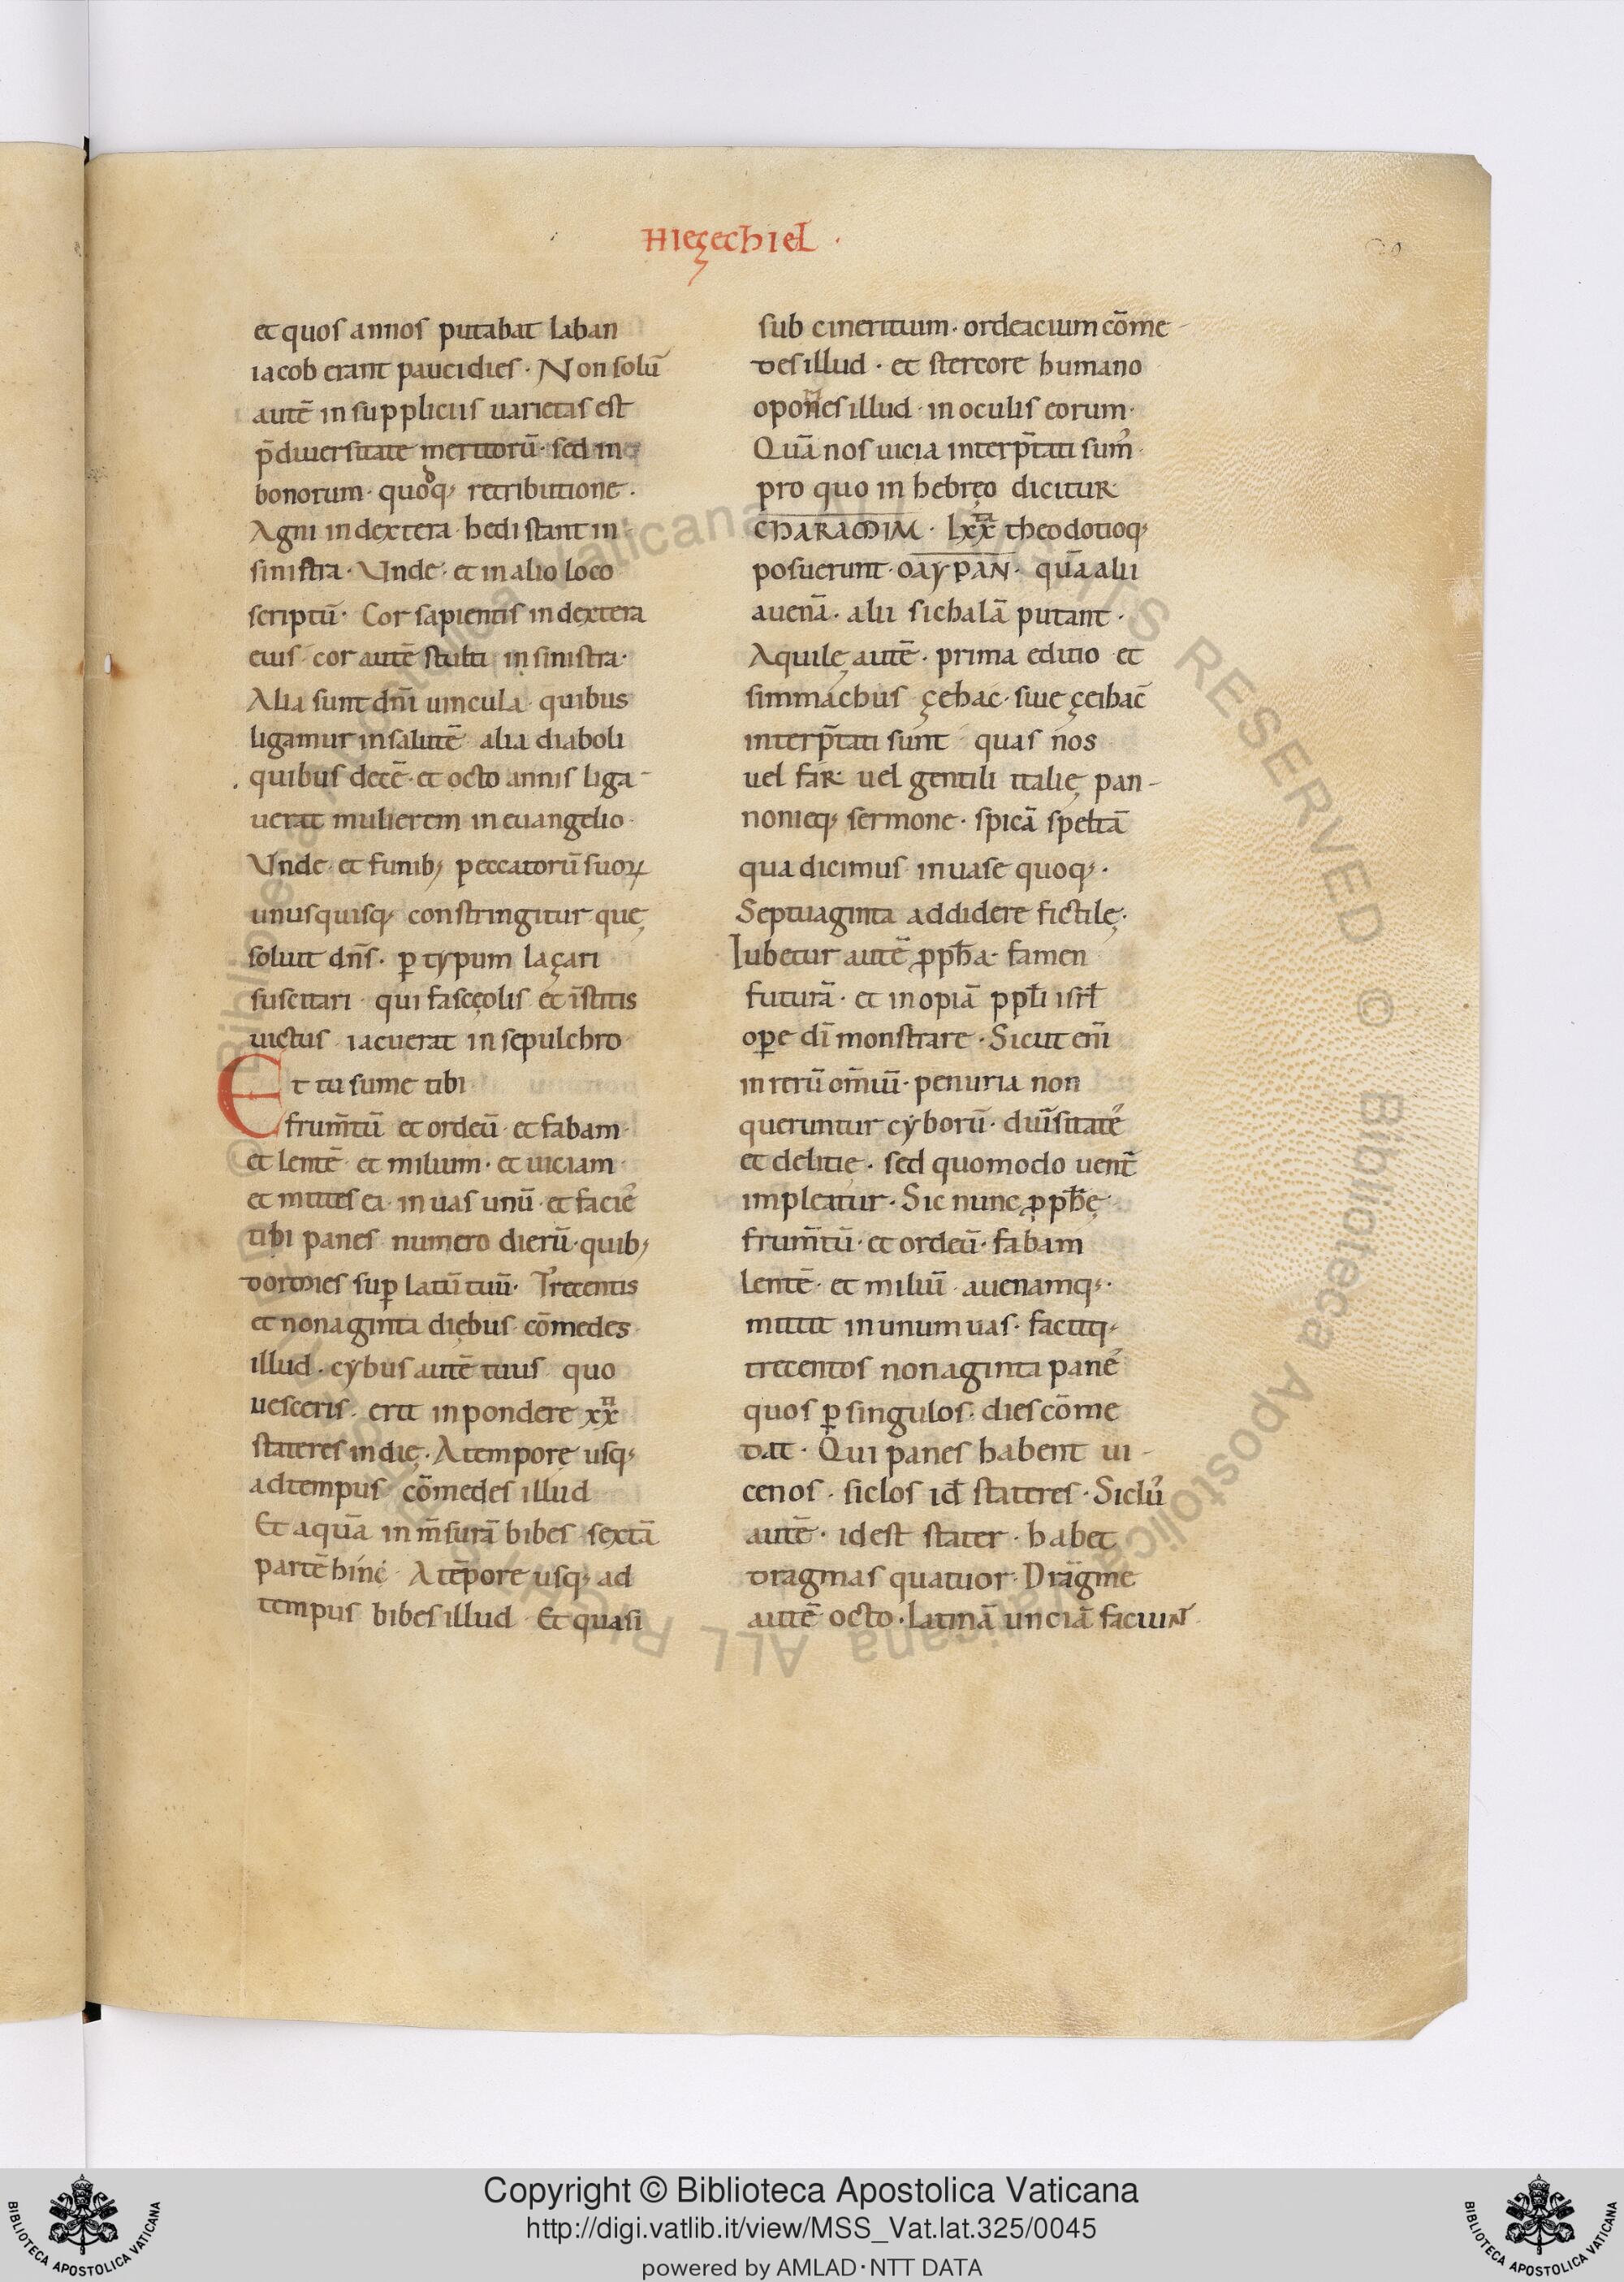 Hiezechiel ·
et quos annos putabat laban
iacob erant pauci dies · Non solū
autē in suppliciis uarietas est
p̄ diuersitate meritorū · sed in
bonorum · quoq; retributione ·
Agni in dextera · hedi stant in
sinistra · Vnde · et in alio loco
scriptū · Cor sapientis in dextera
eius · cor autē stulti in sinistra ·
Alia sunt dn̄i uincula · quibus
ligamur in salutē alia diaboli
· quibus decē · et octo annis liga-
uerat mulierem in euangelio ·
Vnde · et funib; peccatorū suoꝝ
unusquisq; constringitur quę
soluit dn̄s · ꝑ typum laçari
suscitari · qui fascęolis et īstitis
uictus iacuerat in sepulchro
Et tu sume tibi
frum̄tū et ordeū · et fabam ·
et lentē · et milium · et uiciam ·
et mittes ea · in uas unū · et facie᾽
tibi panes numero dierū · quib;
dormies suꝑ latū tuū · Trecentis
et nonaginta diębus · cōmedes ·
illud · cybus autē tuus · quo
uesceris · erit in pondere xx
stateres in dię · A tempore usq;
ad tempus cōmedes illud
Et aquā in m̄surā bibes sextā
partē hinc · A tēpore usq; ad
tempus bibes illud · Et quasi
sub cineritium · ordeacium cōme-
des illud · et stercore humano
opones illud · in oculis eorum ·
Quā nos uicia interp̄tati sum᾽
pro quo in hebręo dicitur
CHARAMIM · lxx theodotioq;
posuerunt · OAYPAN · quā alii
auenā · alii sichalā putant ·
Aquilę autē · prima editio et
simmachus çehac · siue çeihac
interp̄tati sunt quas nos
uel far uel gentili italię pan-
nonieq; sermone · spicā speltā
qua dicimus in uase quoq; ·
Septuaginta addidere fictilę ·
Iubetur autē ꝓph̄a · famen
futurā · et inopiā ppl̄i isrl̄
oꝑe dī monstrare · Sicut em̄
in rerū om̄iū · penuria non
queruntur cyborū · duīsitate᾽
et delitie · sed quomodo uent̄
impleatur · Sic nunc ꝓph̄ę
frum̄tū · et ordeū · fabam
lentē · et miliū auenamq; ·
mittit in unum uas · facitq;
trecentos nonaginta pane᾽
quos ꝑ singulos · dies cōme
dat · Qui panes habent ui-
cenos · siclos id̄ stateres · Siclu᾽
autē · id est stater · habet
dragmas quatuor · Dragme
autē octo · Latinā unciā faciuNT
Copyright © Biblioteca Apostolica Vaticana
http://digi.vatlib.it/view/MSS_Vat.lat.325/0045
powered by AMLAD·NTT DATA
BIBLIOTECA APOSTOLICA VATICANA
BIBLIOTECA APOSTOLICA VATICANA